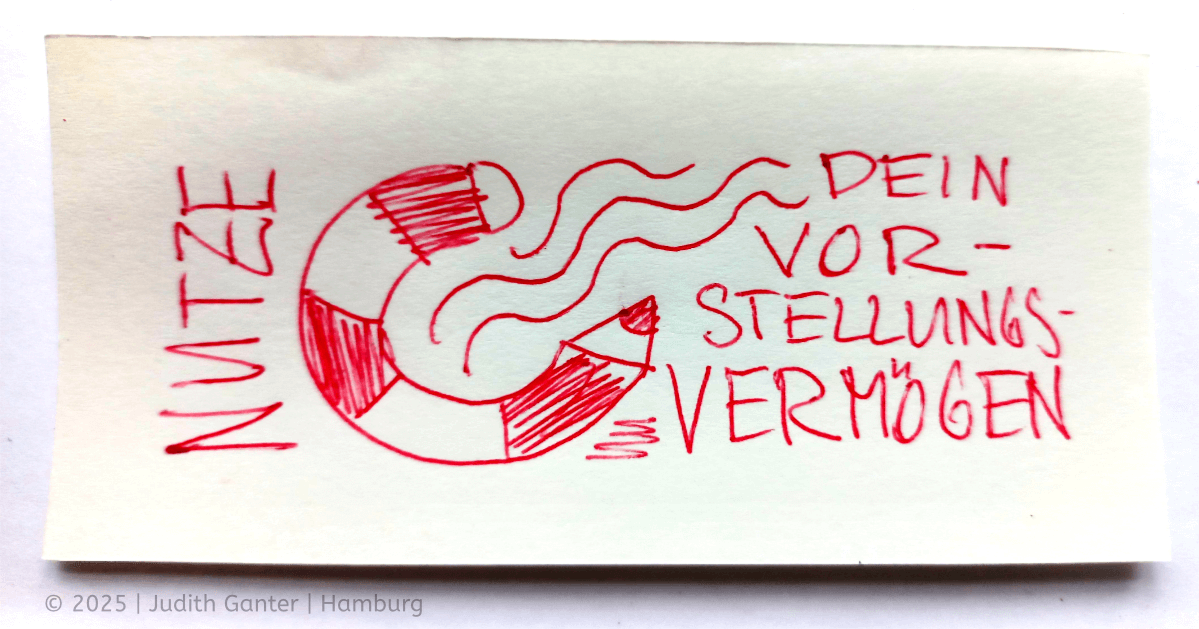 NUTZE
DEIN
VOR-
STELLUNGS-
VERMÖGEN
© 2025 | Judith Ganter | Hamburg